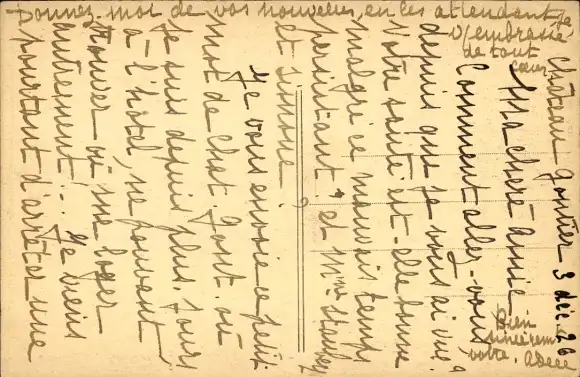 Château Gontier 3 déc 26
Ma chère amie
Comment allez-vous
depuis que je vous ai vue?
Votre santé est-elle bonne
malgré ce mauvais temps
persistant, et Mme
et Simone?
Je vous envoie ce petit
mot de Chat. Gont. où
je suis depuis plus. jours
à l'hôtel, ne pouvant
trouver où me loger
autrement... Je viens
pourtant d'arrêter une
Donnez-moi de vos nouvelles, en les attendant je
v/ embrasse
de tout
cœur
Bien
sincèrement
vôtre.